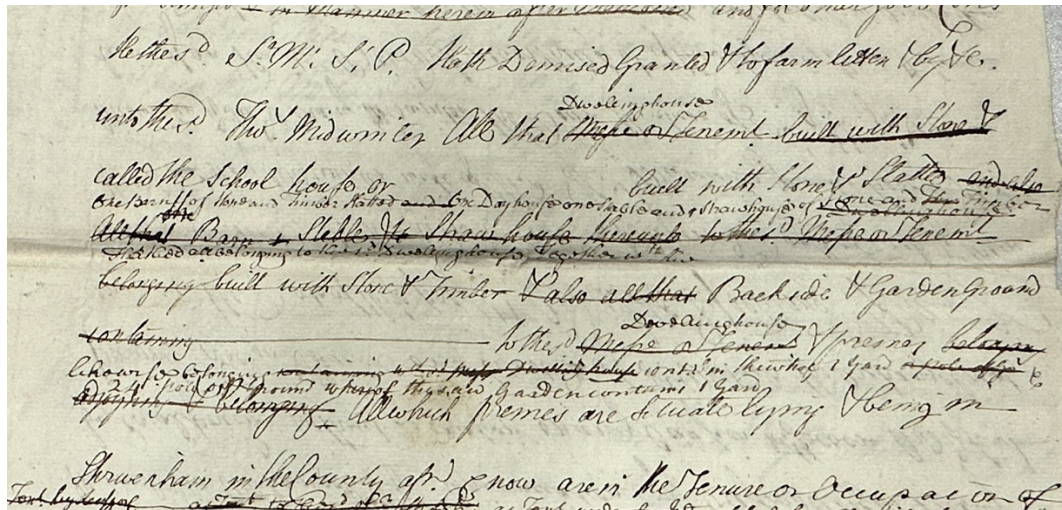 in Manner herein after and for other good
He the sd. Sr. M. S. P. Hath Demised Granted & to farm letten & by &c.
Dwelinghouse
unto the sd. Thos. Midwinter All that Messe or Tenemt. built with Stone &
called the School house or built with Stone & Slatted and also
one Barn of Stone and timber Slatted and One Dayhouse one Stable and Strawhouse of Stone and Timber
one Dwelinghouse
All that Barn & Stable & Straw house thereunto to the sd. Messe or Tenemt.
thatched all belonging to the sd. Dwelinghouse together wth. the
belonging built with Stone & Timber & also all that Backside & Garden Ground
Dwelinghouse
containing to the sd. Messe or Tenemt. & premes belonging
likewise belonging containing in the whole 1 Yard
24 pole of ground whereof the said Garden contains 1 Yard
adjoyning & belonging All which premes are Scituate lying & being in
Shrivenham in the County afd. & now are in the Tenure or Occupacon of